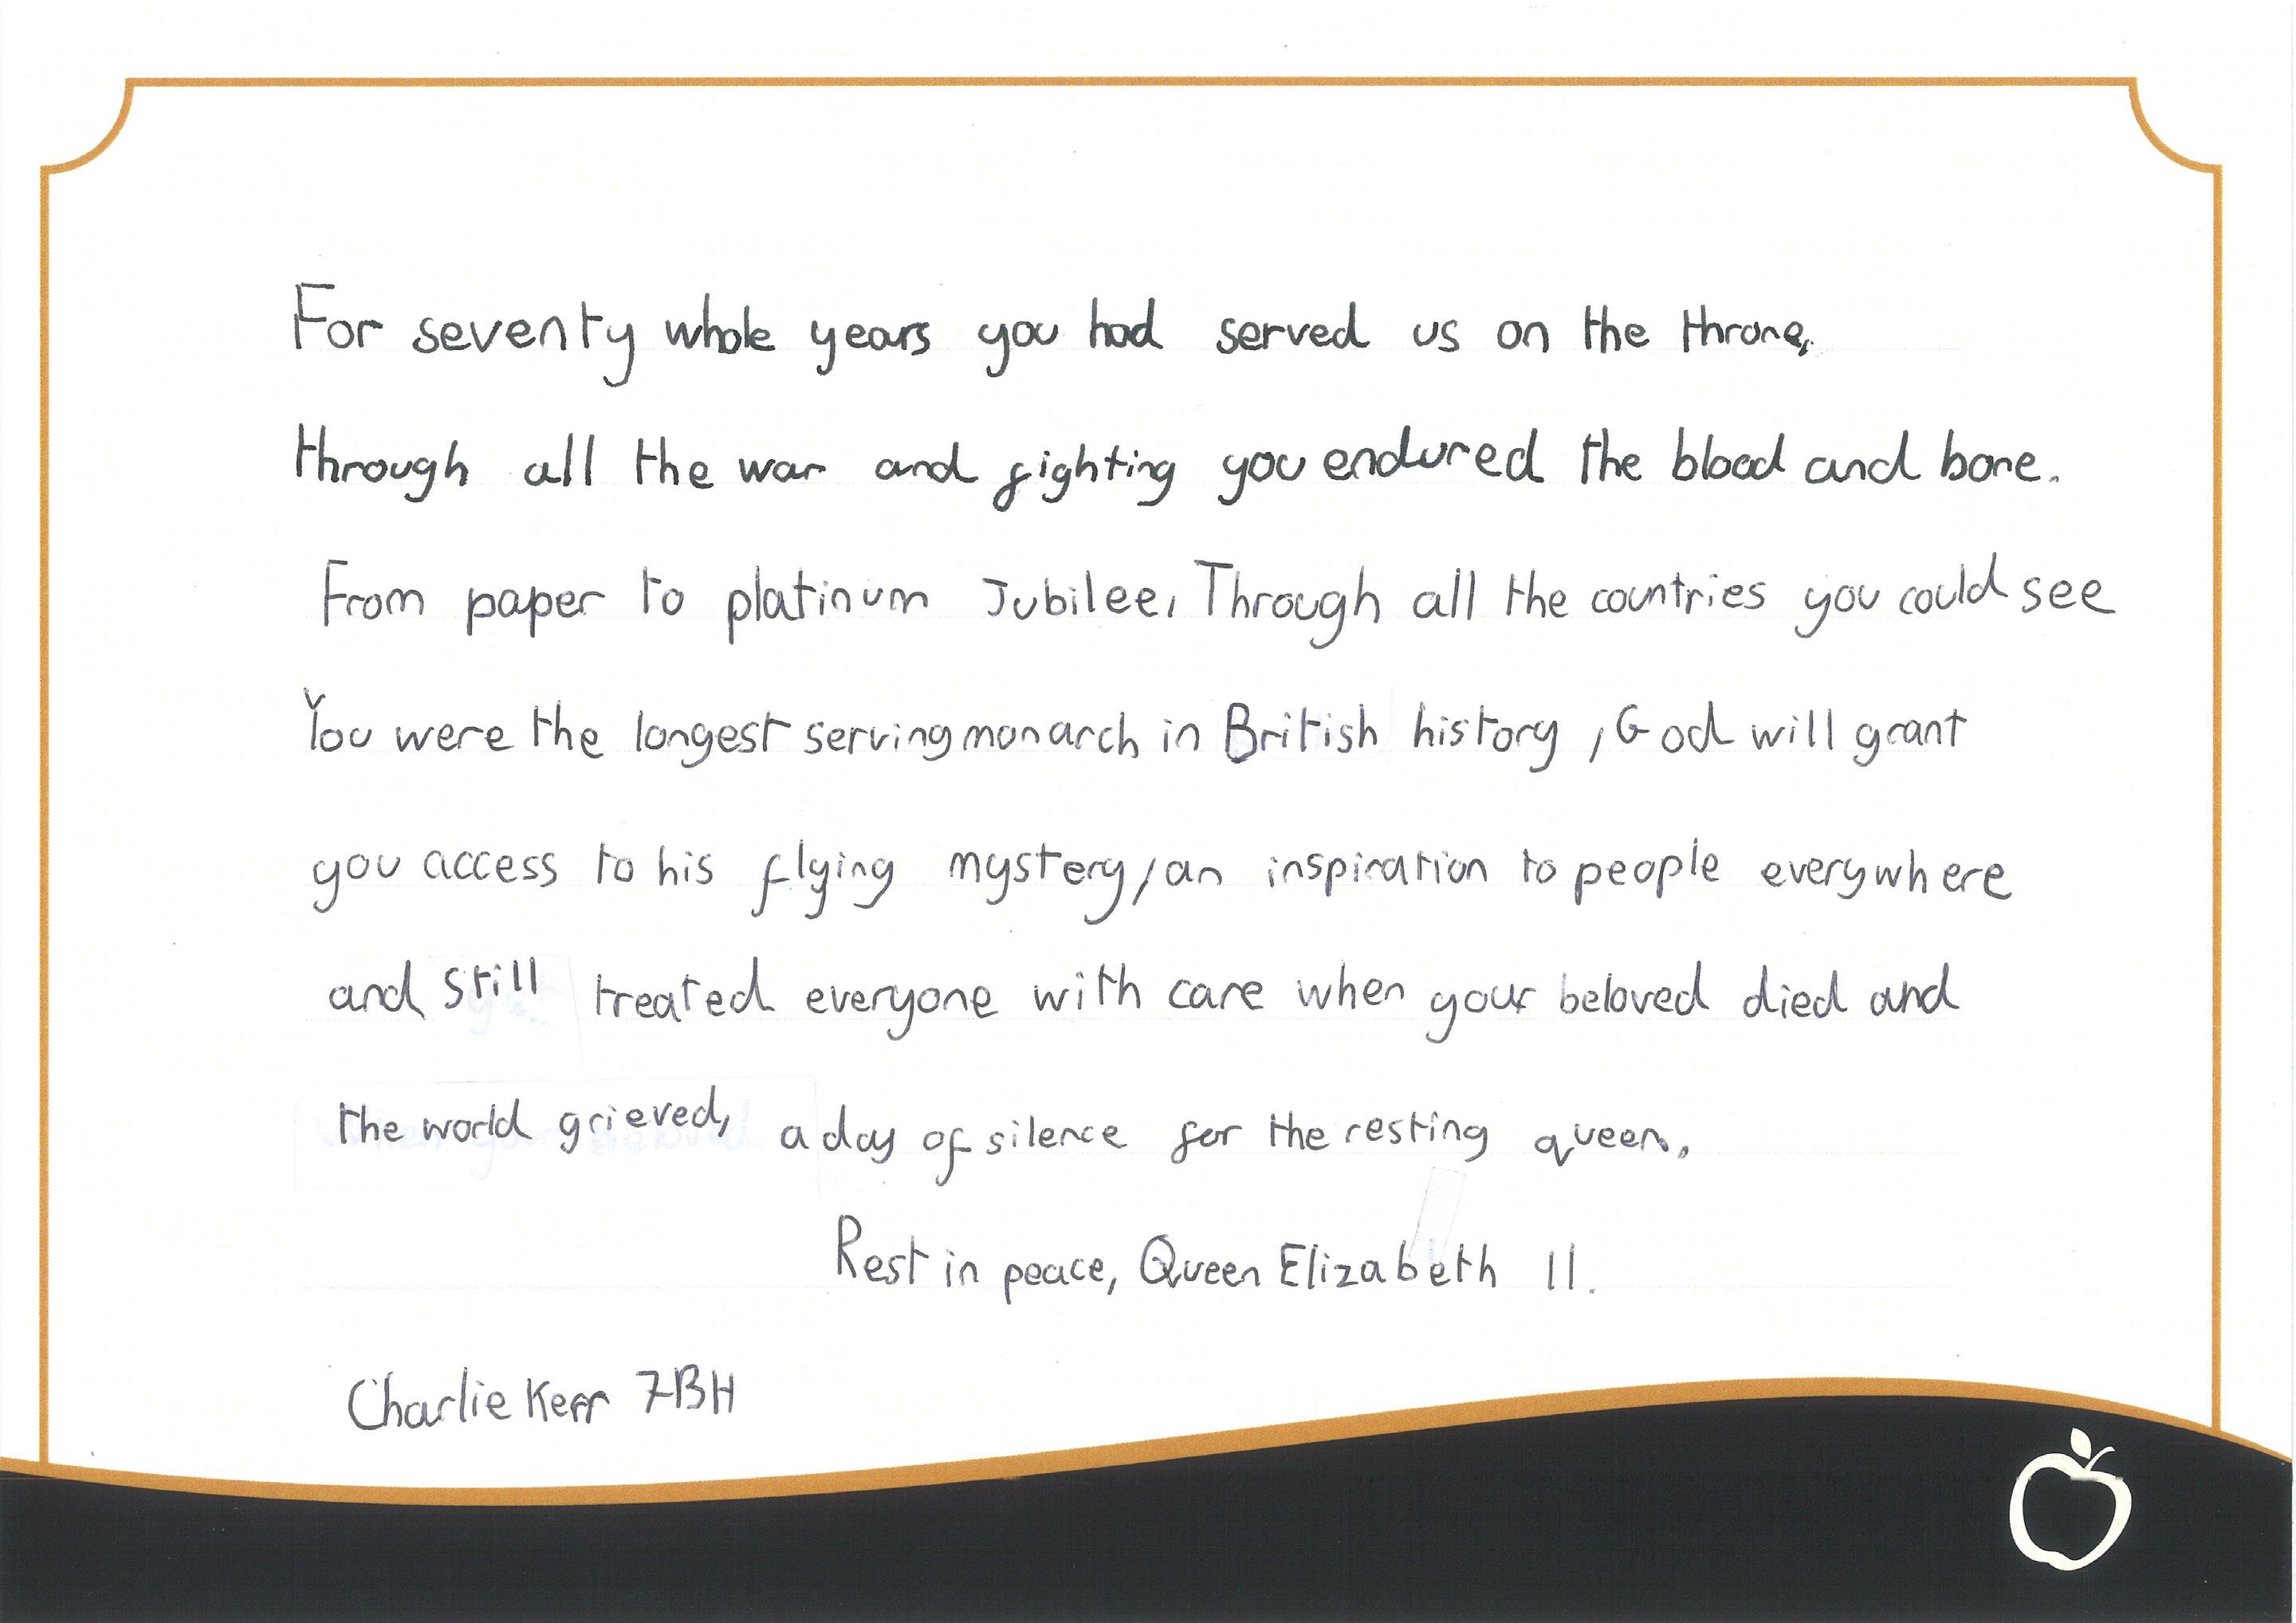 For seventy whole years you had served us on the throne,
through all the war and fighting you endured the blood and bone.
From paper to platinum Jubilee, Through all the countries you could see
You were the longest serving monarch in British history, God will grant
you access to his flying mystery, an inspiration to people everywhere
and still treated everyone with care when your beloved died and
the world grieved, a day of silence for the resting queen.
Rest in peace, Queen Elizabeth II.
Charlie Kerr 7BH